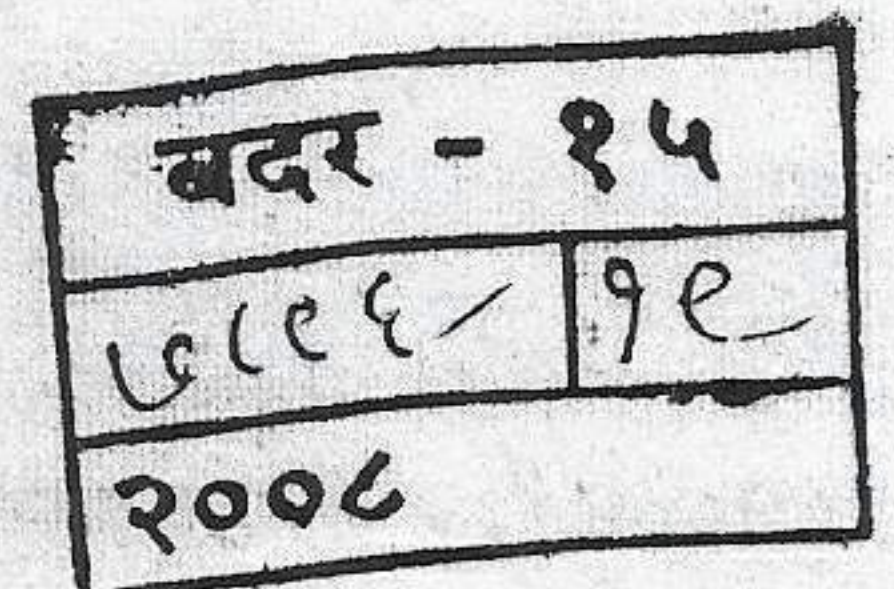 बदर - १५
७८९६/ १९
२००८